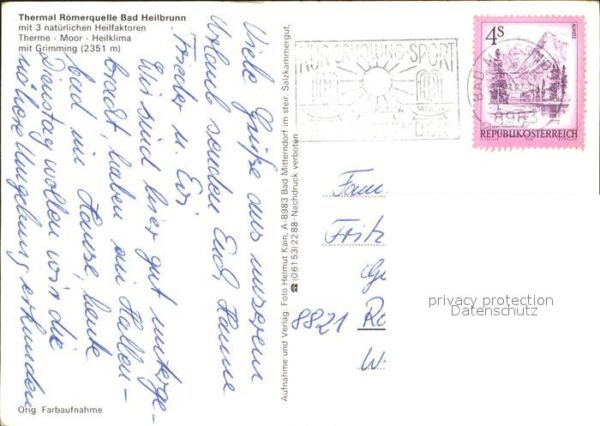 Thermal Römerquelle Bad Heilbrunn
mit 3 natürlichen Heilfaktoren
Therme - Moor - Heilklima
mit Grimming (2351 m)
Viele Grüße aus unserem
Urlaub senden Euch Hanne
Frieder u. Evi
Wir sind hier gut unterge-
bracht, haben ein Hallen-
bad im Hause, heute
Dienstag wollen wir die
nähere Umgebung erkunden
Orig. Farbaufnahme
Aufnahme und Verlag: Foto Helmut Kain, A-8983 Bad Mitterndorf im steir. Salzkammergut,
☎ (06153) 2288 - Nachdruck verboten
KUR ERHOLUNG SPORT
BAD
8983
4S
REPUBLIK ÖSTERREICH
Fam.
Fritz
Ge
8821 Re
W
privacy protection
Datenschutz